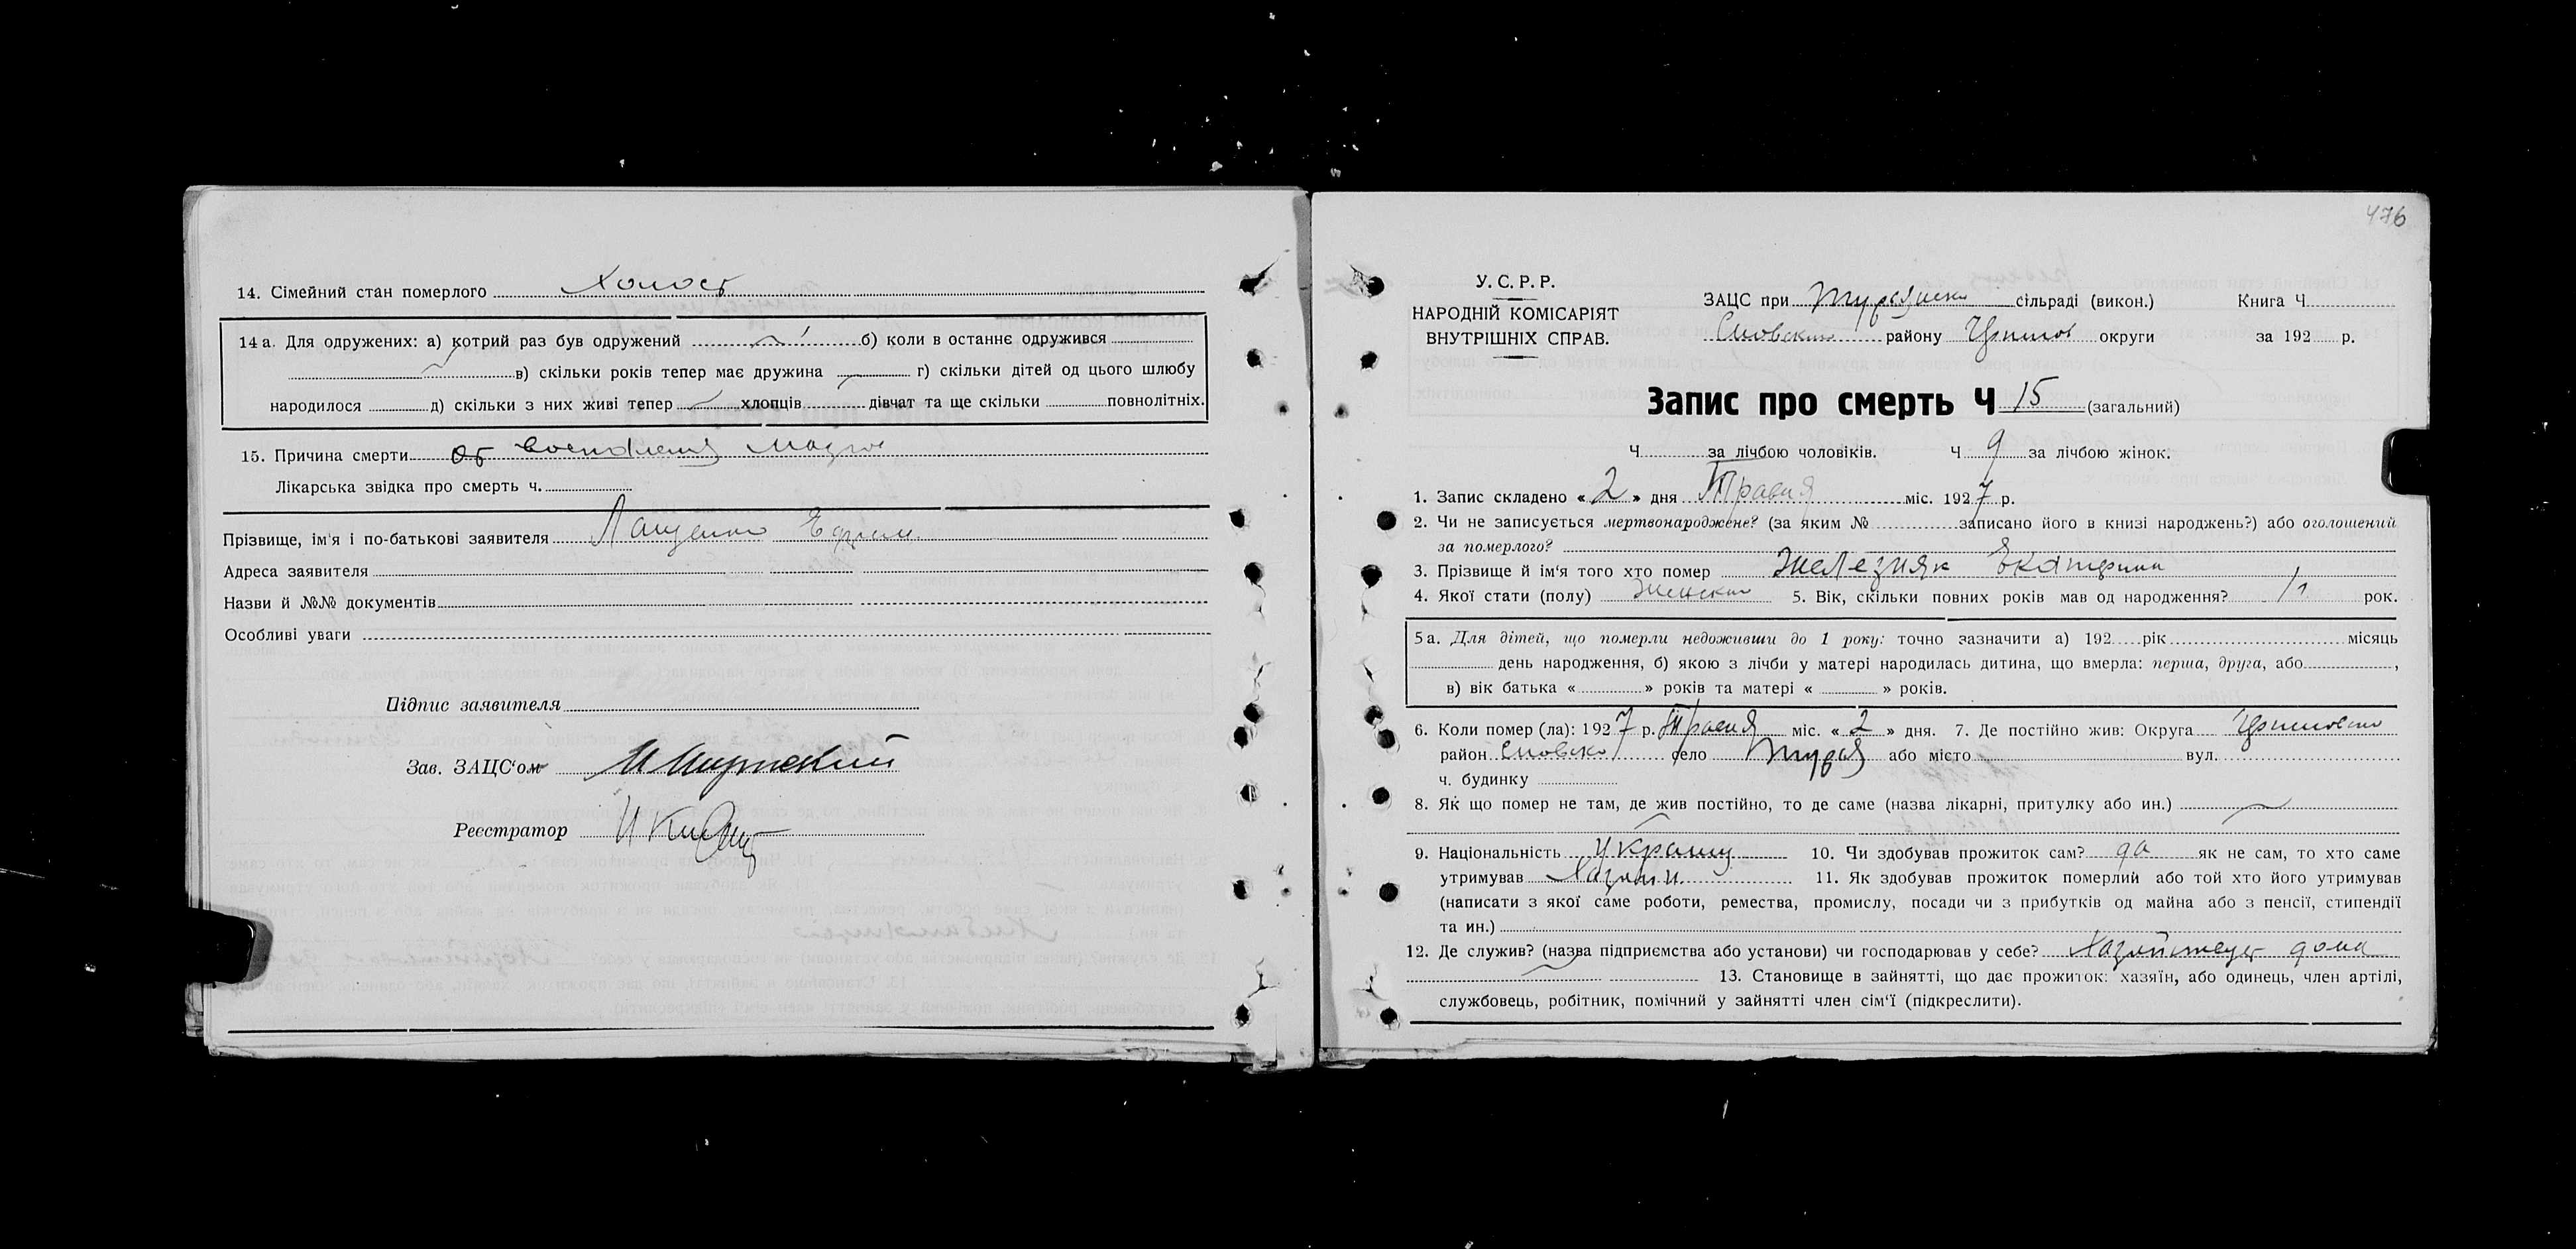 14. Сімейний стан померлого Холост
14 а. Для одружених: а) котрий раз був одружений б) коли в останнє одружився
в) скільки років тепер має дружина г) скільки дітей од цього шлюбу
народилося д) скільки з них живі тепер хлопців дівчат та ще скільки повнолітніх.
15. Причина смерти От воспаления мозгов
Лікарська звідка про смерть ч.
Прізвище, ім'я і по-батькові заявителя Лащенко Ефрем
Адреса заявителя
Назви й №№ документів
Особливі уваги
Підпис заявителя
Зав. ЗАЦС'ом
Реєстратор
476
У. С. Р. Р.
НАРОДНІЙ КОМІСАРІЯТ
ВНУТРІШНІХ СПРАВ.
ЗАЦС при Турянско сільраді (викон.) Книга Ч
Сновским району Чернигов округи за 192 р.
Запис про смерть Ч 15 (загальний)
Ч за лічбою чоловіків. Ч 9 за лічбою жінок.
1. Запис складено « 2 » дня Травня міс. 1927 р.
2. Чи не записується мертвонароджене? (за яким № записано його в книзі народжень?) або оголошений
за померлого?
3. Прізвище й ім'я того хто помер Железняк Екатерина
4. Якої стати (полу) Женском 5. Вік, скільки повних років мав од народження? рок.
5 а. Для дітей, що померли недоживши до 1 року: точно зазначити а) 192 рік місяць
день народження, б) якою з лічби у матері народилась дитина, що вмерла: перша, друга, або ,
в) вік батька « » років та матері « » років.
6. Коли помер (ла): 1927 р. Травня міс. « 2 » дня. 7. Де постійно жив: Округа
район Сновско село Туря або місто вул.
ч. будинку
8. Як що помер не там, де жив постійно, то де саме (назва лікарні, притулку або ин.)
9. Національність Украинц 10. Чи здобував прожиток сам? да як не сам, то хто саме
утримував Хазяин 11. Як здобував прожиток померлий або той хто його утримував
(написати з якої саме роботи, ремества, промислу, посади чи з прибутків од майна або з пенсії, стипендії
та ин.)
12. Де служив? (назва підприємства або установи) чи господарював у себе? дома
13. Становище в зайнятті, що дає прожиток: хазяїн, або одинець, член артілі,
службовець, робітник, помічний у зайнятті член сім'ї (підкреслити).